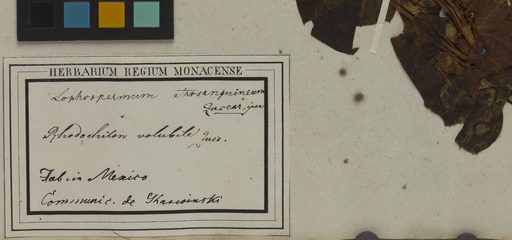 HERBARIUM REGIUM MONACENSE
Lophospermum atrosanguineum
Zuccar.
Rhodochiton volubile Zucc.
Hab. in Mexico
Communic. de Karwinski